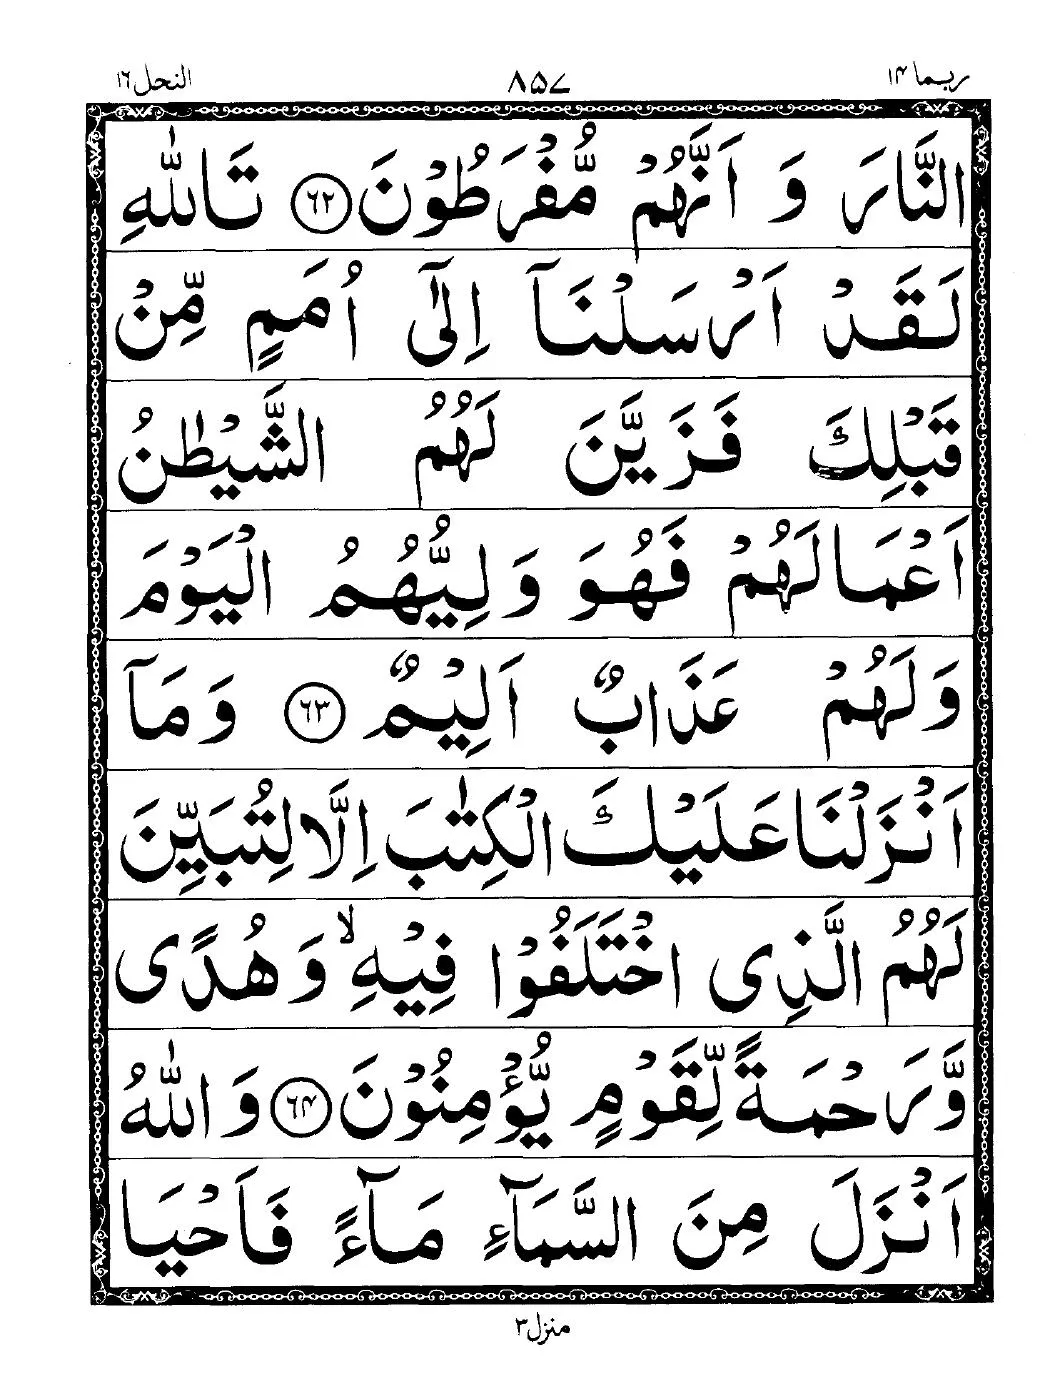 ربما ۱۴ ۸۵۷ النحل ۱۶
النَّارَ وَ اَنَّهُمْ مُّفْرَطُوْنَ ﴿۶۲﴾ تَاللّٰهِ
لَقَدْ اَرْسَلْنَاۤ اِلٰۤى اُمَمٍ مِّنْ
قَبْلِكَ فَزَيَّنَ لَهُمُ الشَّيْطٰنُ
اَعْمَالَهُمْ فَهُوَ وَلِيُّهُمُ الْيَوْمَ
وَلَهُمْ عَذَابٌ اَلِيْمٌ ﴿۶۳﴾ وَمَاۤ
اَنْزَلْنَا عَلَيْكَ الْكِتٰبَ اِلَّا لِتُبَيِّنَ
لَهُمُ الَّذِى اخْتَلَفُوْا فِيْهِ ۙ وَهُدًى
وَّرَحْمَةً لِّقَوْمٍ يُّؤْمِنُوْنَ ﴿۶۴﴾ وَاللّٰهُ
اَنْزَلَ مِنَ السَّمَآءِ مَآءً فَاَحْيَا
منزل ۳